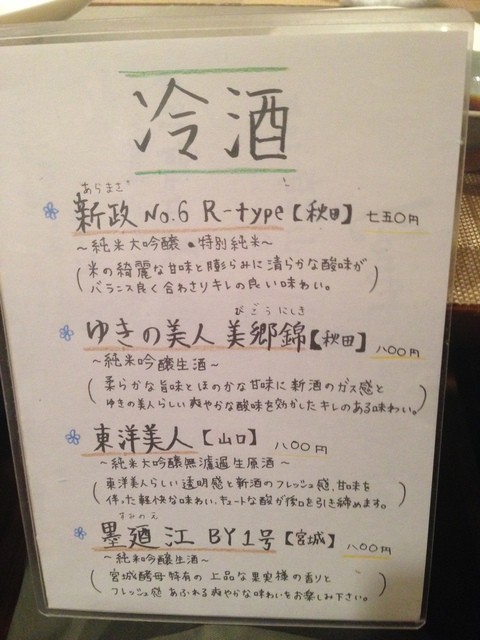 冷酒
あらまさ
新政 No.6 R-type【秋田】 七五〇円
～純米大吟醸・特別純米～
(米の綺麗な甘味と膨らみに清らかな酸味が
バランス良く合わさりキレの良い味わい。)
びごうにしき
ゆきの美人 美郷錦【秋田】 八〇〇円
～純米吟醸生酒～
(柔らかな旨味とほのかな甘味に新酒のガス感と
ゆきの美人らしい爽やかな酸味を効かしたキレのある味わい。)
東洋美人【山口】 八〇〇円
～純米大吟醸無濾過生原酒～
(東洋美人らしい透明感と新酒のフレッシュ感、甘味を
伴った軽快な味わい、キュートな酸が後口を引き締めます。)
すみのえ
墨廼江 BY1号【宮城】 八〇〇円
～純米吟醸生酒～
(宮城酵母特有の上品な果実様の香りと
フレッシュ感あふれる爽やかな味わいをお楽しみ下さい。)